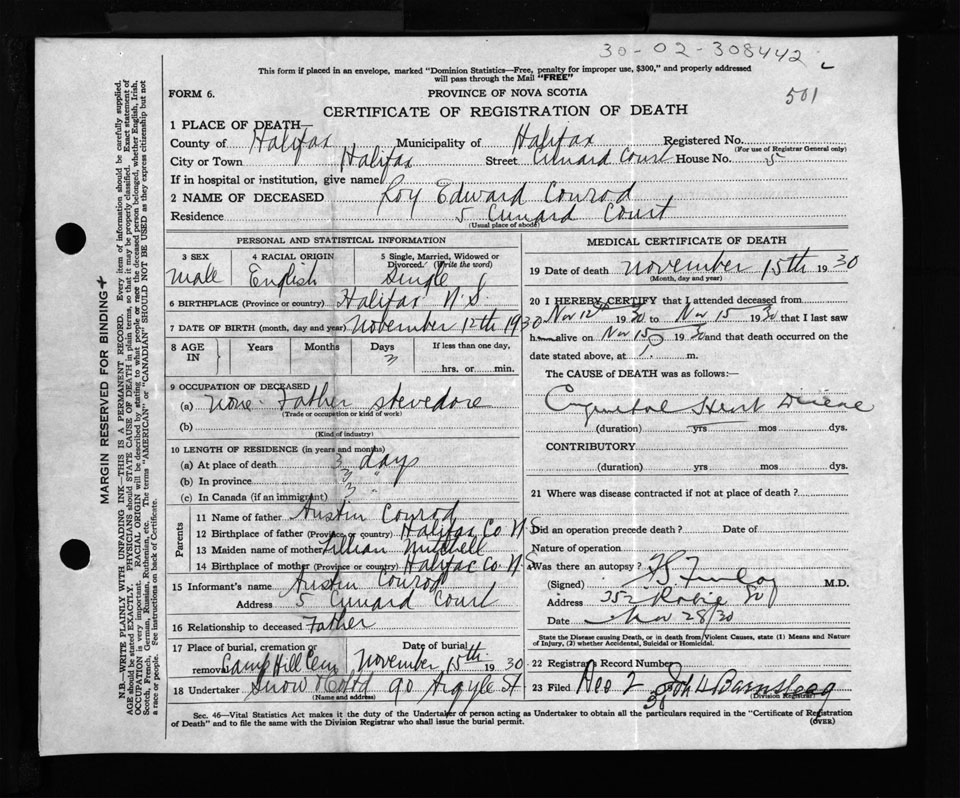 30-02-308442
This form if placed in an envelope, marked "Dominion Statistics—Free, penalty for improper use, $300," and properly addressed
will pass through the Mail "FREE"
501
FORM 6.
PROVINCE OF NOVA SCOTIA
CERTIFICATE OF REGISTRATION OF DEATH
1 PLACE OF DEATH—
County of Halifax Municipality of Halifax Registered No.
(For use of Registrar General only)
City or Town Halifax Street Cunard Court House No. 5
If in hospital or institution, give name
2 NAME OF DECEASED Roy Edward Conrod
Residence 5 Cunard Court
(Usual place of abode)
PERSONAL AND STATISTICAL INFORMATION
3 SEX 4 RACIAL ORIGIN 5 Single, Married, Widowed or Divorced. (Write the word)
male English Single
6 BIRTHPLACE (Province or country) Halifax N.S.
7 DATE OF BIRTH (month, day and year) November 12th 1930
8 AGE IN Years Months Days If less than one day,
3
hrs. or min.
9 OCCUPATION OF DECEASED
(a) none. Father stevedore
(Trade or occupation or kind of work)
(b)
(Kind of industry)
10 LENGTH OF RESIDENCE (in years and months)
(a) At place of death 3 days
(b) In province 3 "
(c) In Canada (if an immigrant) 3 "
Parents
11 Name of father Austin Conrod
12 Birthplace of father (Province or country) Halifax Co N.S
13 Maiden name of mother Lillian Mitchell
14 Birthplace of mother (Province or country) Halifax Co N.S
15 Informant's name Austin Conrod
Address 5 Cunard Court
16 Relationship to deceased Father
17 Place of burial, cremation or removal Camp Hill Cem Date of burial November 15th 1930
18 Undertaker Snow & Co Ltd 90 Argyle St
(Name and address)
MEDICAL CERTIFICATE OF DEATH
19 Date of death November 15th 1930
(Month, day and year)
20 I HEREBY CERTIFY that I attended deceased from
Nov 12th 1930 to Nov 15 1930 that I last saw
h alive on Nov 15 1930 and that death occurred on the
date stated above, at m.
The CAUSE OF DEATH was as follows:—
Congenital Heart Disease
(duration) yrs mos dys.
CONTRIBUTORY
(duration) yrs mos dys.
21 Where was disease contracted if not at place of death?
Did an operation precede death? Date of
Nature of operation
Was there an autopsy?
(Signed) M.D.
Address 252 Robie St
Date Nov 28/30
State the Disease causing Death, or in death from Violent Causes, state (1) Means and Nature
of Injury, (2) whether Accidental, Suicidal or Homicidal.
22 Registrar's Record Number
23 Filed Dec 2 30 John L Barnstead
(Division Registrar)
Sec. 46—Vital Statistics Act makes it the duty of the Undertaker or person acting as Undertaker to obtain all the particulars required in the "Certificate of Registration
of Death" and to file the same with the Division Registrar who shall issue the burial permit.
(OVER)
MARGIN RESERVED FOR BINDING
N.B.—WRITE PLAINLY WITH UNFADING INK—THIS IS A PERMANENT RECORD. Every item of information should be carefully supplied.
AGE should be stated EXACTLY. PHYSICIANS should STATE CAUSE OF DEATH in plain terms, so that it may be properly classified. Exact statement of
OCCUPATION is very important. RACIAL ORIGIN will be described by stating to what people or race the deceased person belonged, whether English, Irish,
Scotch, French, German, Russian, Ruthenian, etc. The terms "AMERICAN" or "CANADIAN" SHOULD NOT BE USED as they express citizenship but not
a race or people. See instructions on back of Certificate.